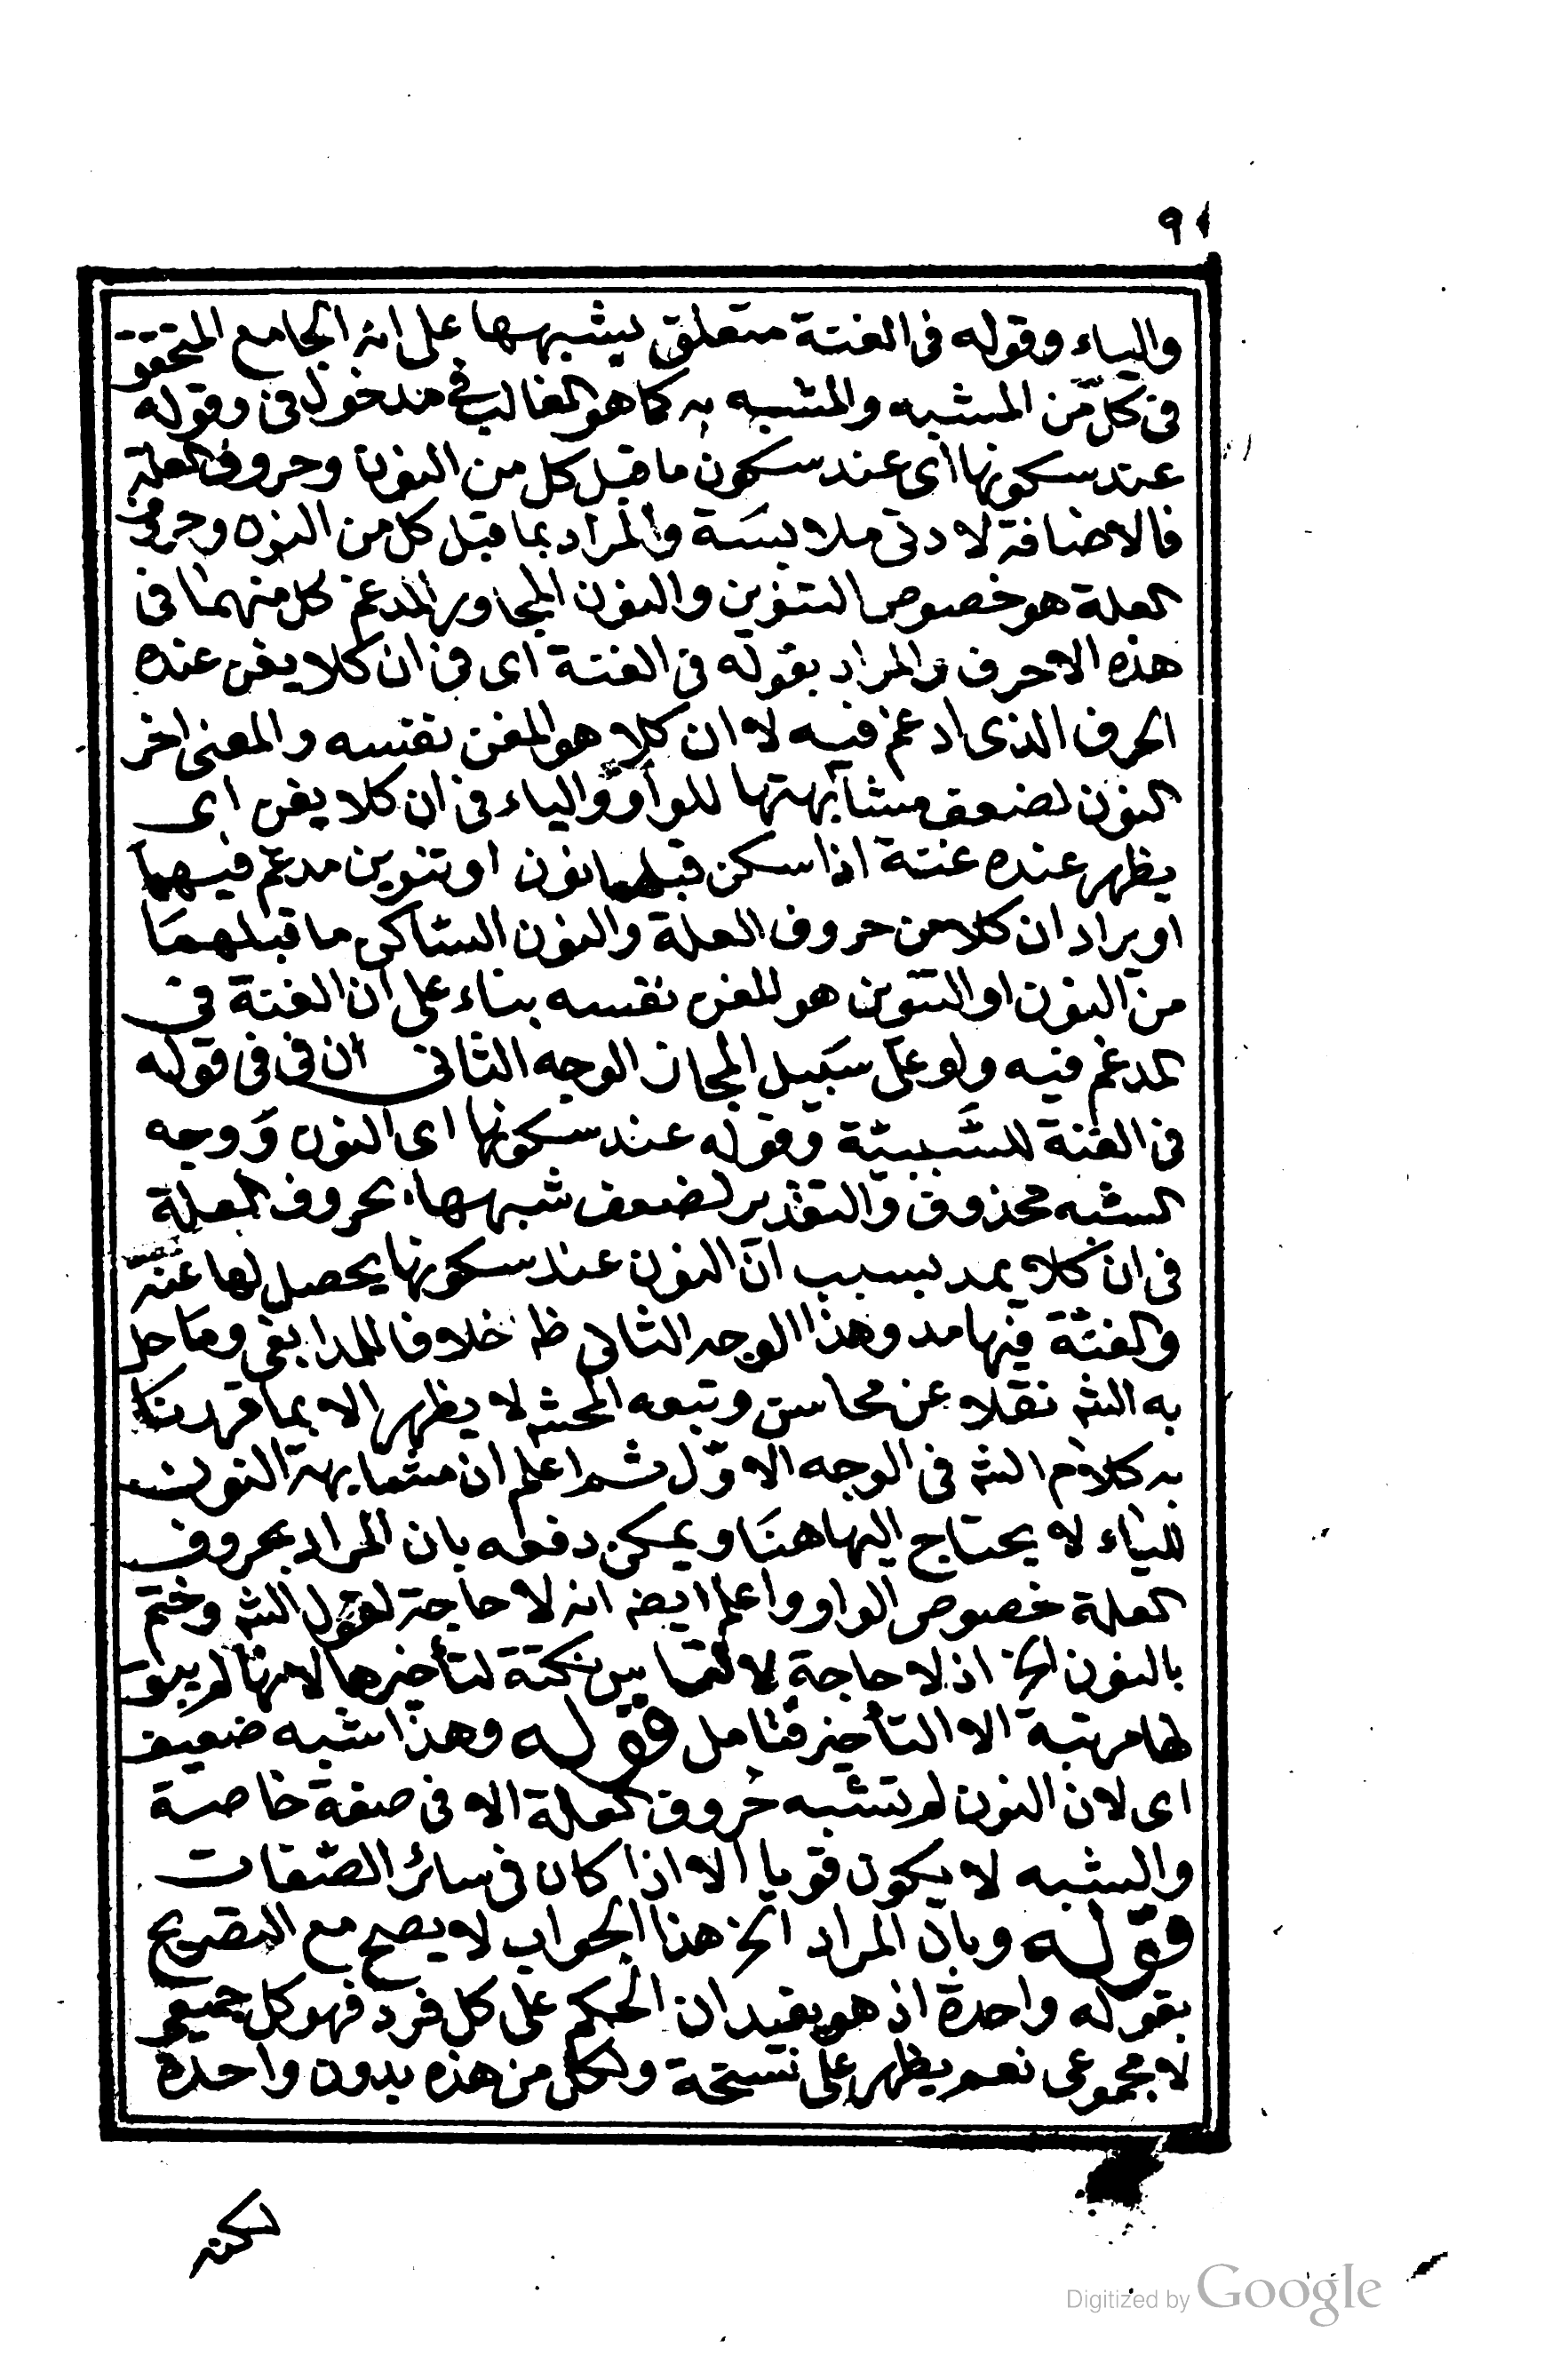 ٩١
والياء وقوله فى الغنة متعلق بشبهها على انه الجامع المتحقق
فى كل من المشبه والمشبه به كما هو الغالب فى مدخول فى وقوله
عند سكونها اى عند سكون ما قبل كل من النون وحروف العلة
فالاضافة لادنى ملابسة والمراد بما قبل كل من النون وحرفى
العلة هو خصوص التنوين والنون المجاور المدغم كل منهما فى
هذه الاحرف والمراد بقوله فى الغنة اى فى ان كلا يغن عنده
الحرف الذى ادغم فيه لا ان كلا هو المغن نفسه والمعنى اخر
النون لضعف مشابهتها للواو والياء فى ان كلا يغن اى
يظهر عنده غنة اذا سكن قبلهما نون او تنوين مدغم فيهما
او يراد ان كلا من حروف العلة والنون الساكن ما قبلهما
من النون او التنوين هو المغن نفسه بناء على ان الغنة فى
المدغم فيه ولو على سبيل المجاز الوجه الثانى ان فى فى قوله
فى الغنة للسببية وقوله عند سكونها اى النون ووجه
الشبه محذوف والتقدير لضعف شبهها بحروف العلة
فى ان كلا يمد بسبب ان النون عند سكونها يحصل لها غنة
والغنة فيها مد وهذا الوجه الثانى ظ خلافا للمدابغى وما حل
به الشه نقلا عن محاسن وتبعه المحشه لا يظهر الا بما قررنا
به كلام الشه فى الوجه الاول ثم اعلم ان مشابهة النون
للياء لا يحتاج اليها هنا ويمكن دفعه بان المراد بحروف
العلة خصوص الواو واعلم ايضه انه لا حاجة لقول الشه وختم
بالنون الخ اذ لا حاجة لالتماس نكتة لتأخيرها لانها لم يبق
لها مرتبة الا التأخير فتامل قوله وهذا شبه ضعيف
اى لان النون لم تشبه حروف العلة الا فى صفة خاصة
والشبه لا يكون قويا الا اذا كان فى سائر الصفات
قوله وبان المراد الخ هذا الجواب لا يصح مع التصريح
بقوله واحدة اذ هو يفيد ان الحكم على كل فرد فهو كل جميعى
لا مجموعى نعم يظهر على نسخة ولكل من هذه بدون واحدة
لكن
Digitized by Google